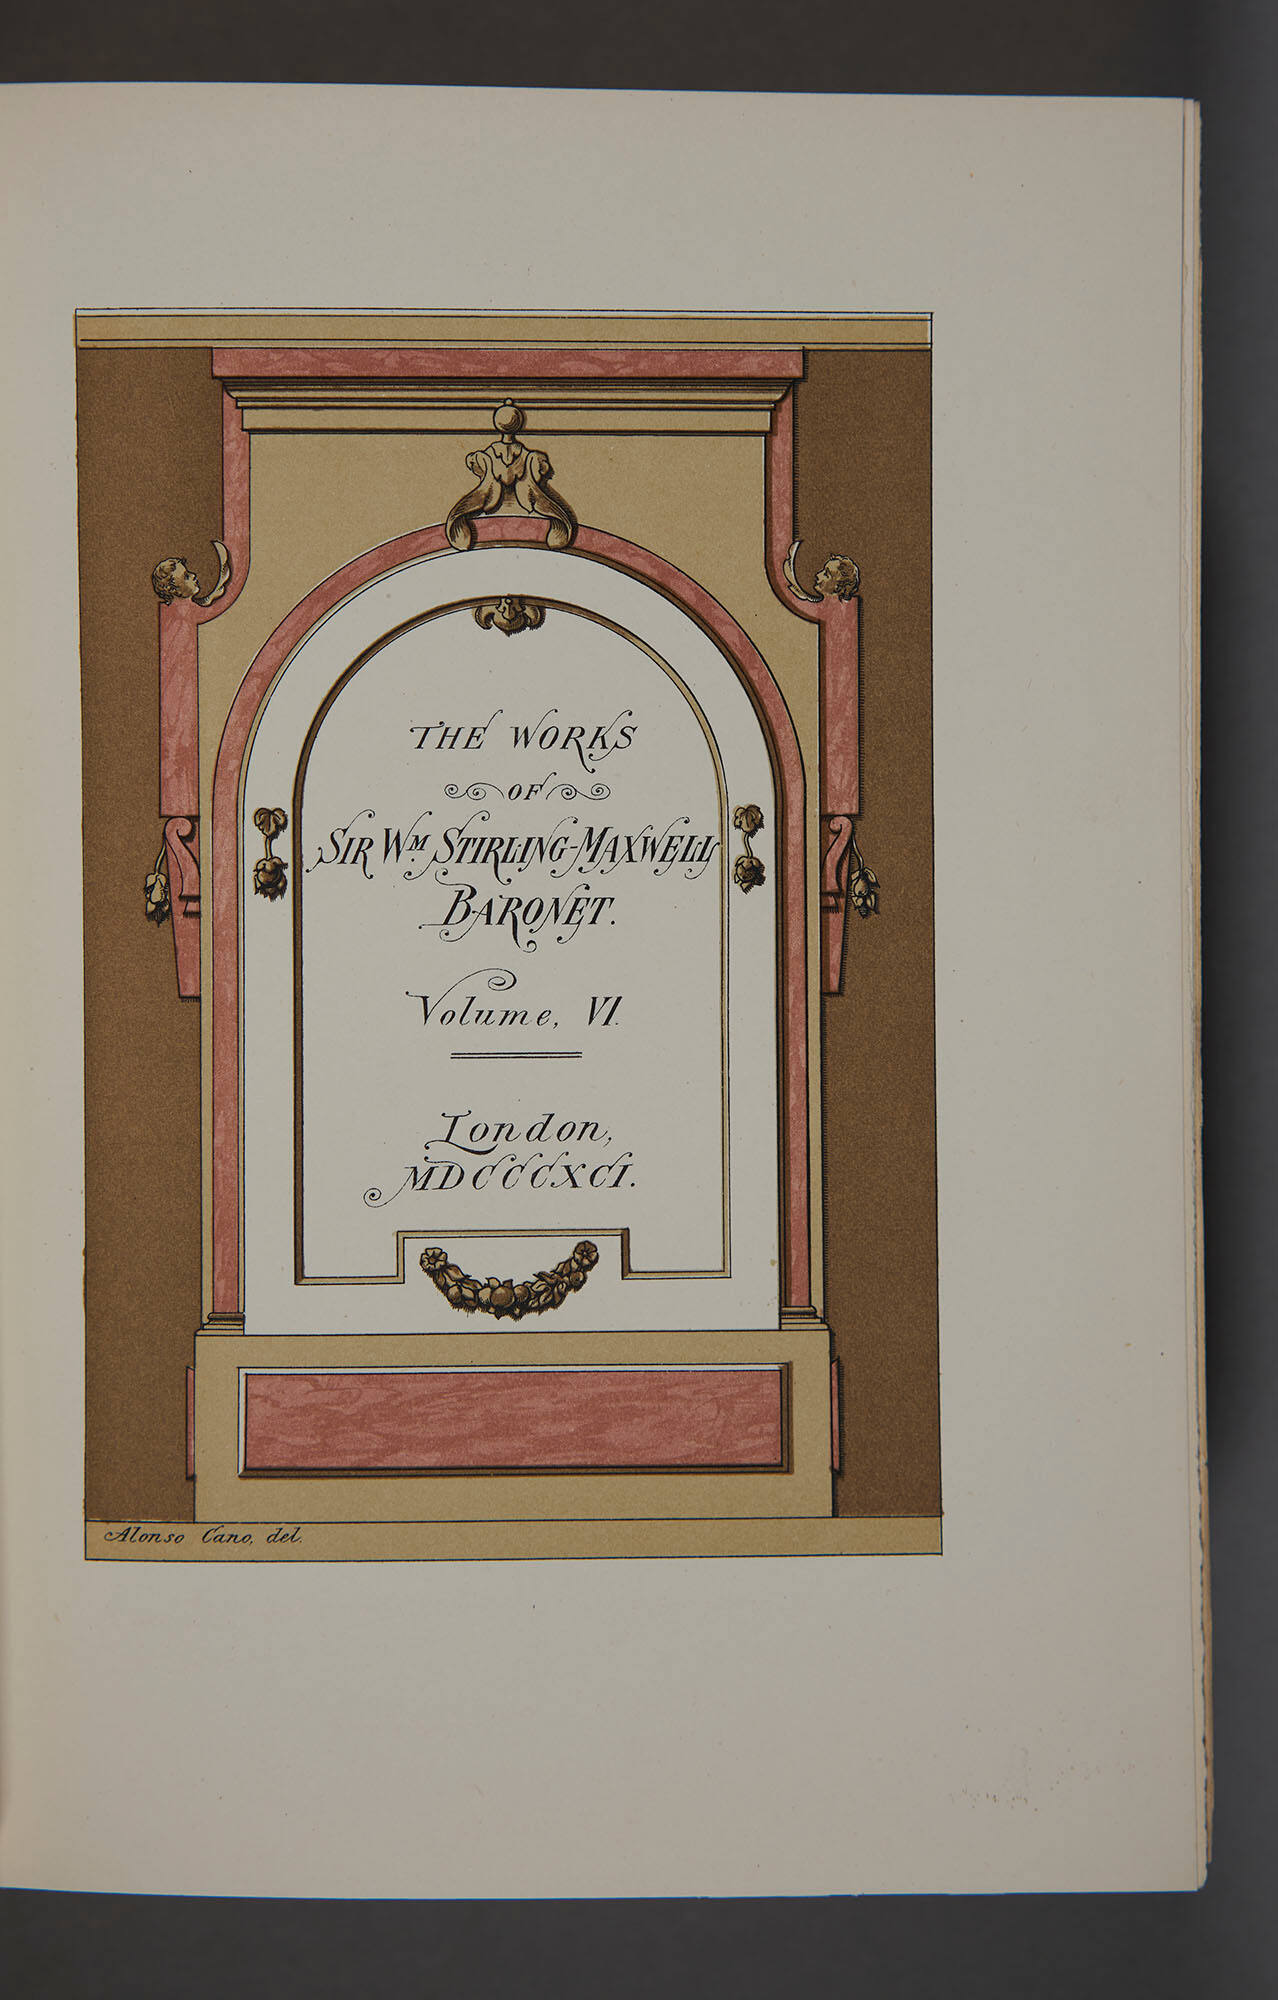 THE WORKS
OF
SIR WM. STIRLING-MAXWELL
BARONET.
Volume, VI.
London,
MDCCCXCI.
Alonso Cano, del.